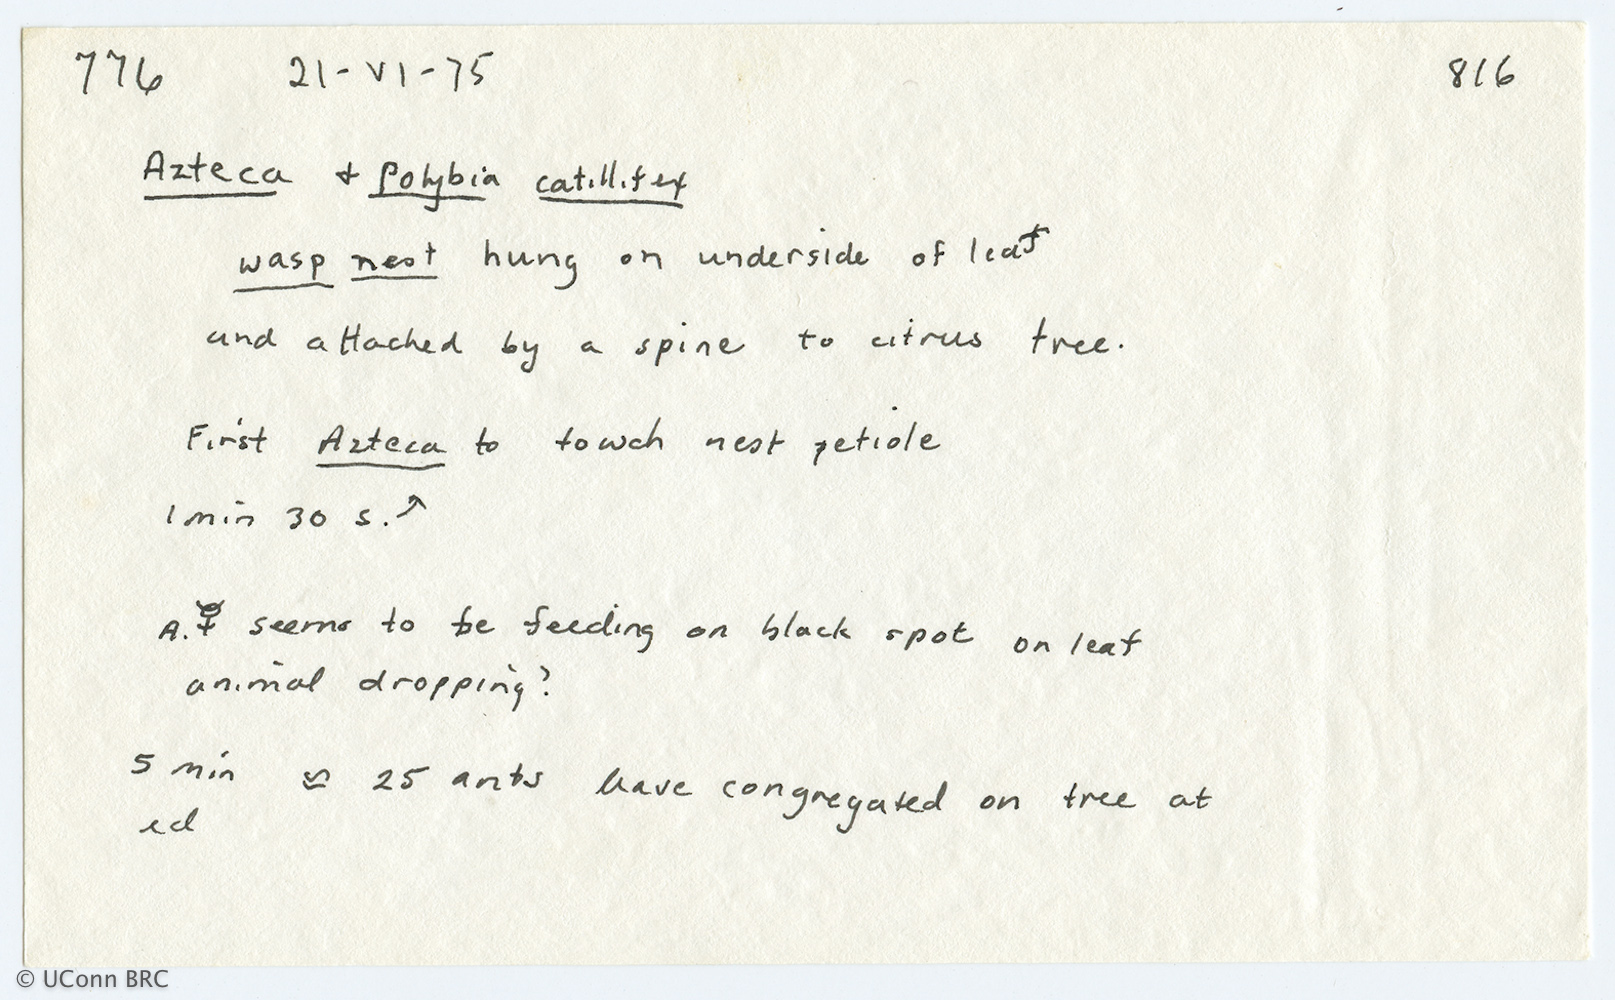 776 21-VI-75 816
Azteca + Polybia catillifex
wasp nest hung on underside of leaf
and attached by a spine to citrus tree.
First Azteca to touch nest petiole
1 min 30 s. ↗
A. ☿ seems to be feeding on black spot on leaf
animal dropping?
5 min ≈ 25 ants have congregated on tree at
ed
© UConn BRC